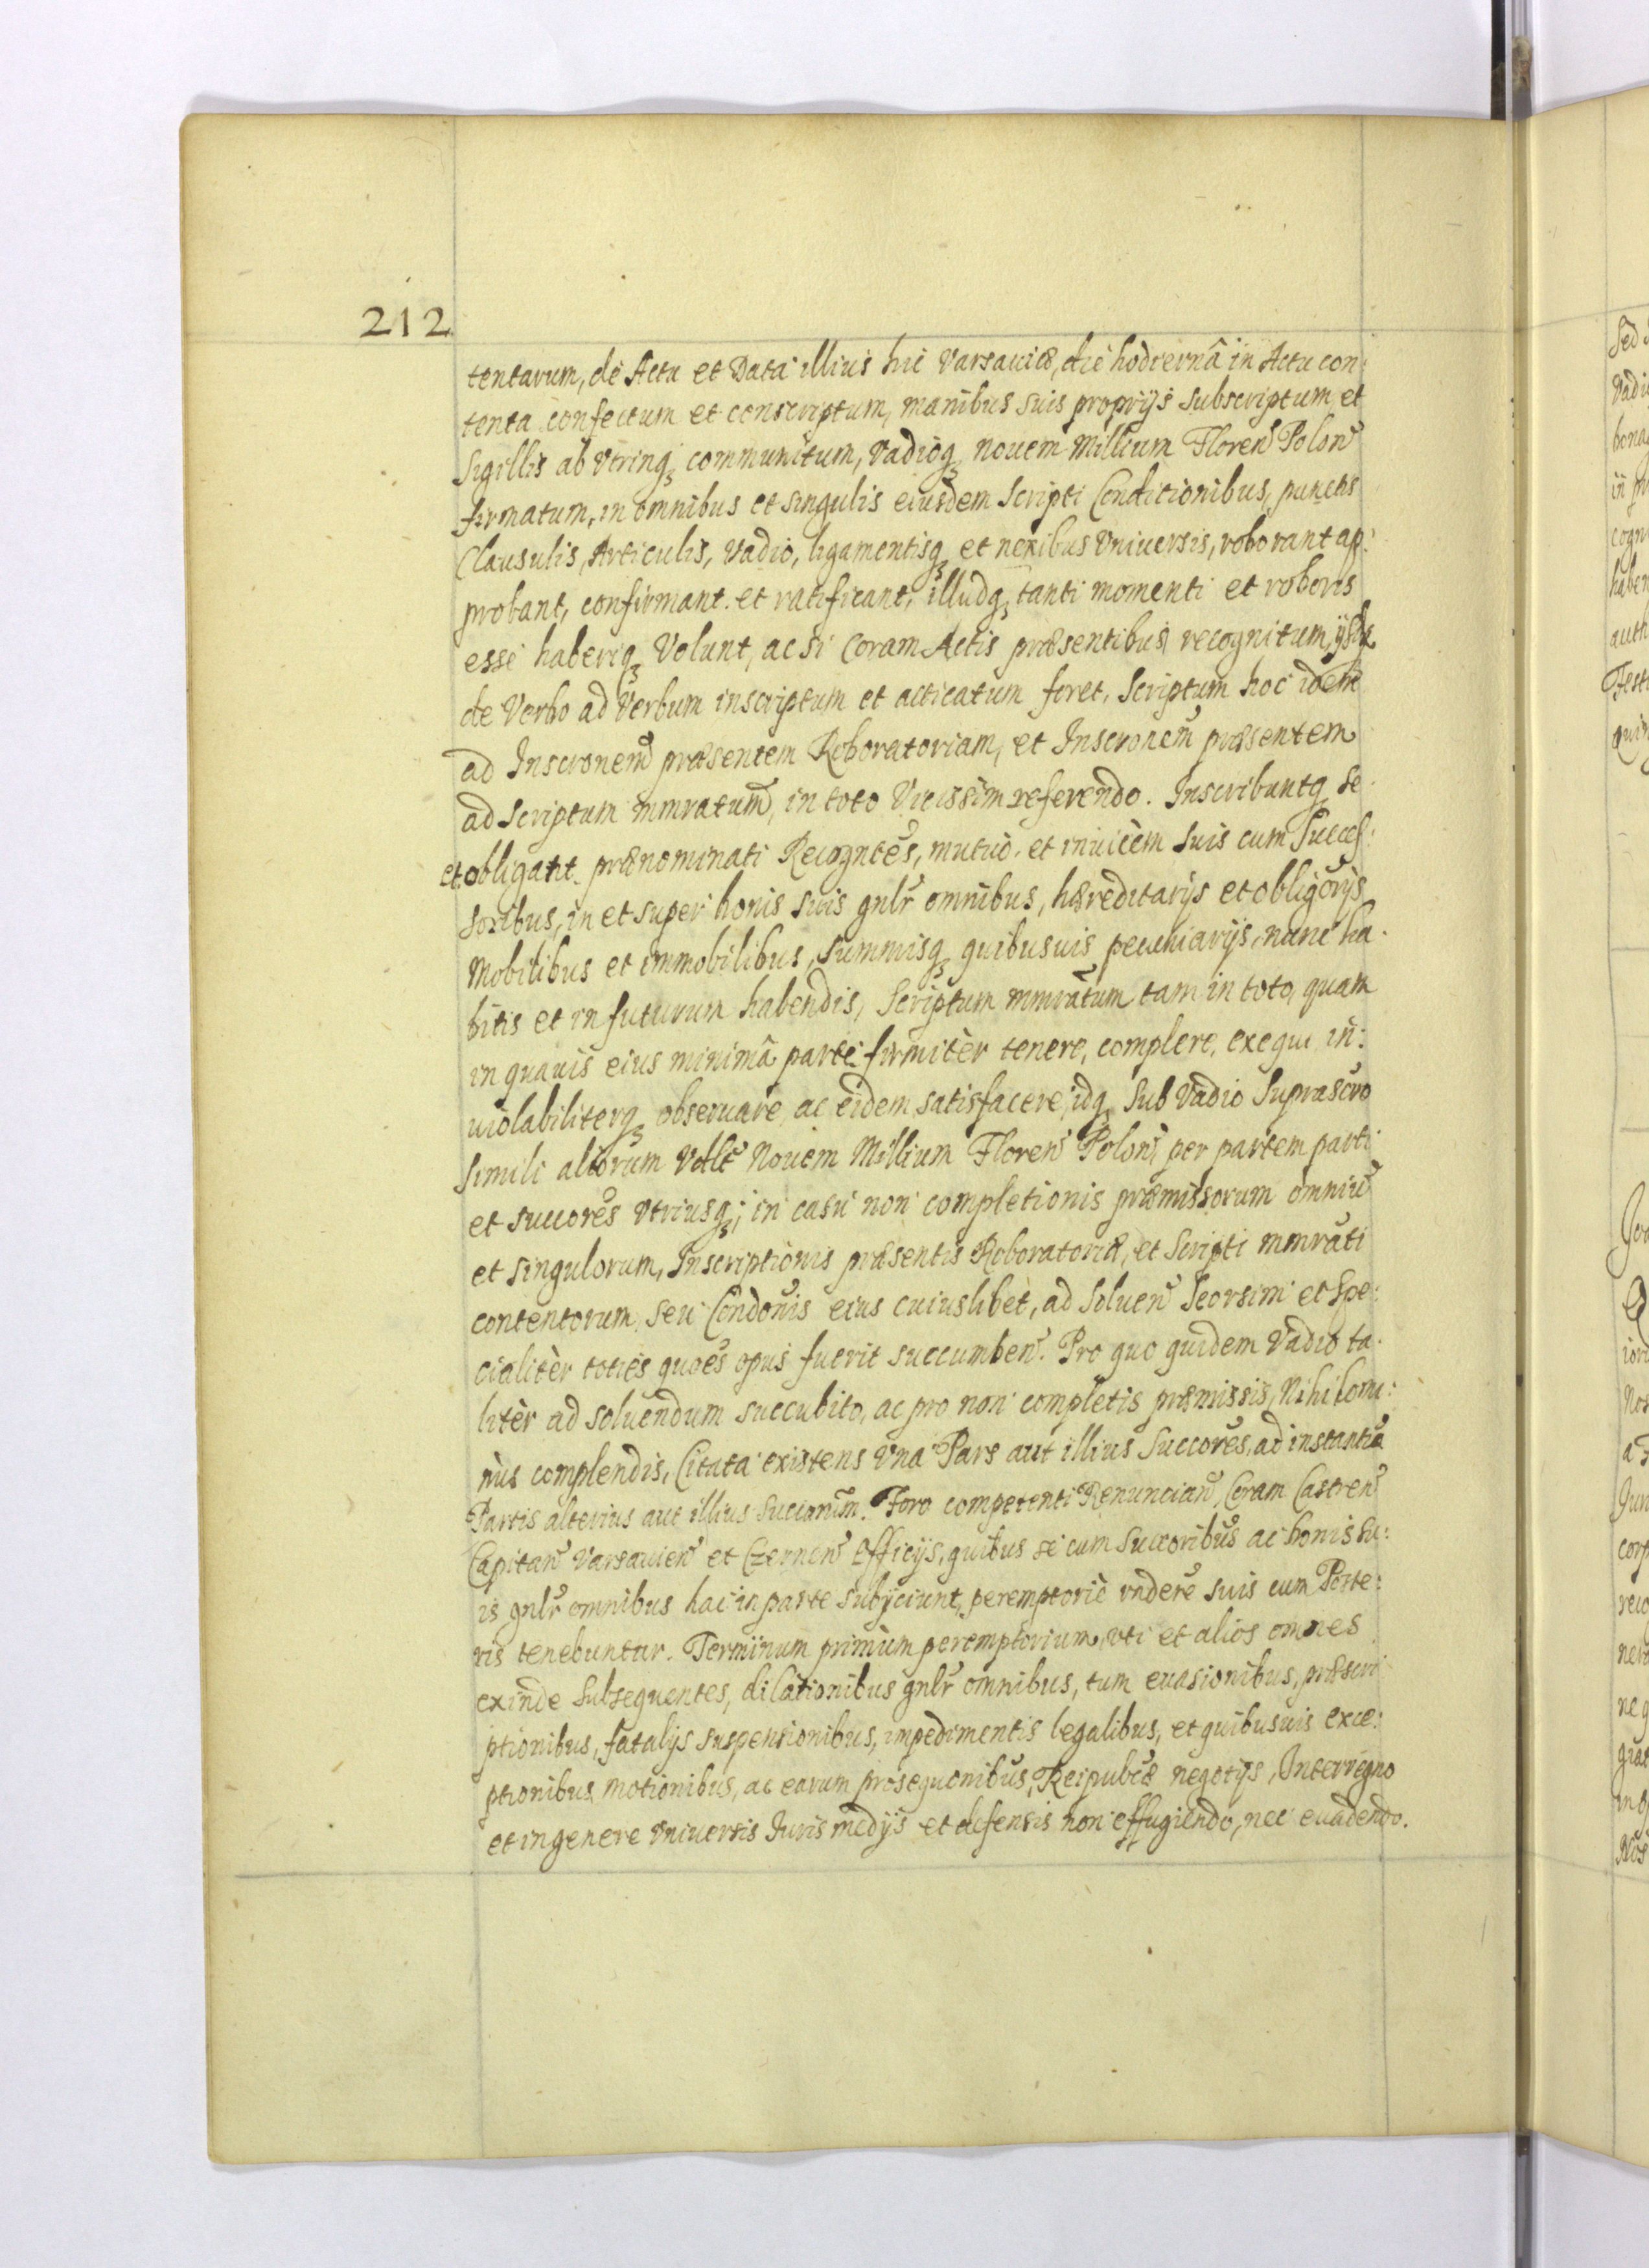 212
tentarum, de Actu et Data illius hic Varsauiæ, die hodiernâ in Actu con:
tenta confectum et conscriptum, manibus suis proprijs subscriptum et
Sigillis ab vtrinq; communitum, Vadioq; nouem Millium Floren Polon
firmatum, in omnibus et singulis eiusdem Scripti Conditionibus, punctis
Clausulis, Articulis, Vadio, ligamentisq; et nexibus Vniuersis, roborant ap:
probant, confirmant et ratificant, illudq; tanti momenti et roboris
esse haberiq; Volunt, ac si Coram Actis præsentibus recognitum, ijsdq;
de Verbo ad Verbum inscriptum et acticatum foret, Scriptum hoc idem
ad Inscronem præsentem Roboratoriam, et Inscronem præsentem
ad Scriptum mmratum, in toto Vicissim referendo. Inscribuntq; se
et obligant prænominati Recogntes, mutuò et inuicèm suis cum Succes:
soribus, in et super bonis suis gnlr omnibus, hæreditarijs et obligorijs
Mobilibus et immobilibus, summisq; quibusuis pecuniarijs, nunc ha:
bitis et in futurum habendis, Scriptum mmratum tam in toto, quam
in quauis eius minimâ parte firmitèr tenere, complere, exequi in:
uiolabiliterq; obseruare, ac eidem satisfacere, idq; sub Vadio Suprascro
simili aliorum Nouem Millium Floren Polon per partem parti
et succores vtriusq; in casu non completionis præmissorum omniu
et singulorum, Inscriptionis præsentis Roboratoriæ, et Scripti mmrati
contentorum seu Condonis eius cuiuslibet, ad Soluen Seorsim et Spe:
cialitèr toties quoes opus fuerit succumben. Pro quo quidem Vadio ta:
litèr ad soluendum succubito, ac pro non completis præmissis, Nihilomi:
nùs complendis, Citata existens Vna Pars aut illius Succores, ad instantia
Partis alterius aut illius Succorum. Foro competenti Renuncian, Coram Castren
Capitan Varsauien et Czernen Officijs, quibus se cum Succoribus ac bonis su:
is gnlr omnibus hac in parte subijciunt, peremptoriè rndere suis cum Poste:
ris tenebuntur. Terminum primùm peremptorium, vti et alios omnes
exinde Subsequentes, dilationibus gnlr omnibus, tum euasionibus, præscri
ptionibus, fatalijs suspensionibus, impedimentis legalibus, et quibusuis exce:
ptionibus motionibus, ac earum prosequonibus, Reipublæ negotijs, Interregno
et in genere Vniuersis Iuris medijs et defensis non effugiendo, nec euadendo.